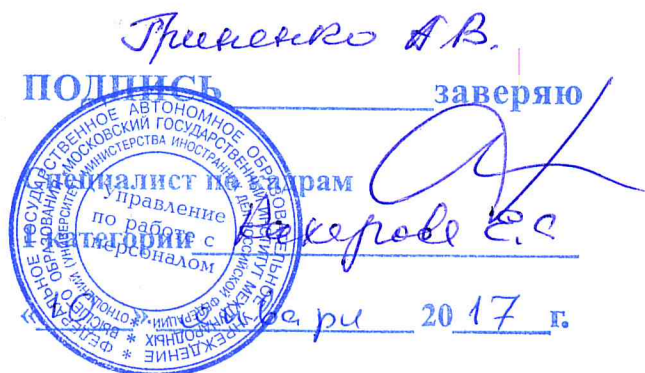 Гриненко А.В.
ПОДПИСЬ заверяю
Специалист по кадрам
I категории Е.С
января 2017 г.
ФЕДЕРАЛЬНОЕ ГОСУДАРСТВЕННОЕ АВТОНОМНОЕ ОБРАЗОВАТЕЛЬНОЕ УЧРЕЖДЕНИЕ * ВЫСШЕГО ОБРАЗОВАНИЯ МОСКОВСКИЙ ГОСУДАРСТВЕННЫЙ ИНСТИТУТ МЕЖДУНАРОДНЫХ ОТНОШЕНИЙ (УНИВЕРСИТЕТ) МИНИСТЕРСТВА ИНОСТРАННЫХ ДЕЛ РОССИЙСКОЙ ФЕДЕРАЦИИ *
Управление
по работе с
персоналом